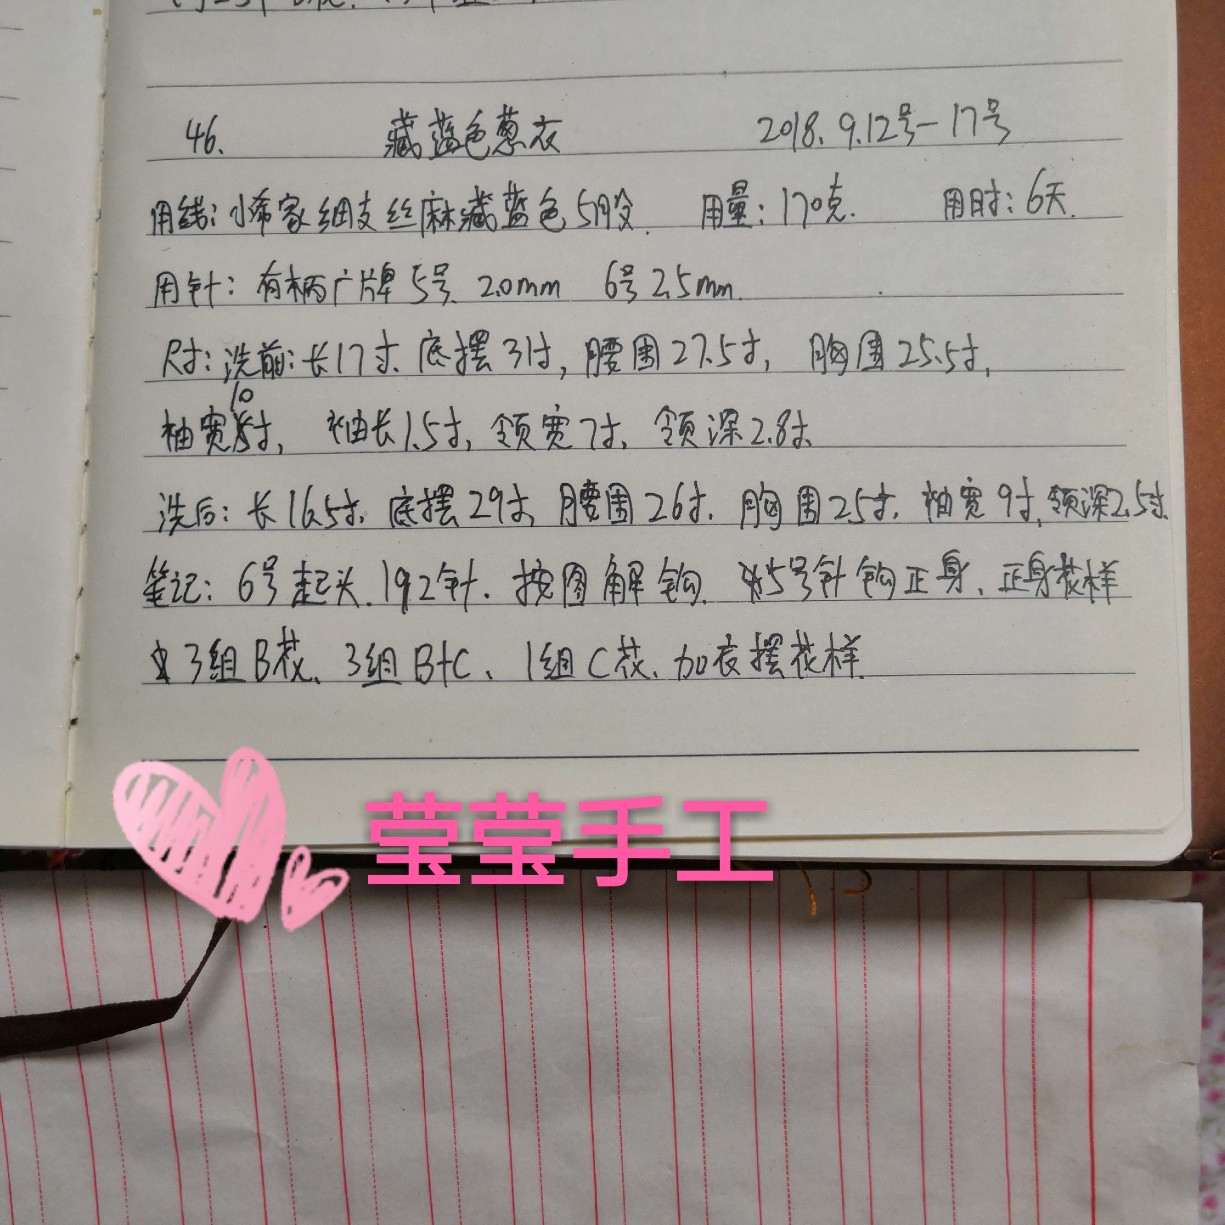 46. 藏蓝色蔥衣 2018.9.12号-17号
用线:小希家细支丝麻藏蓝色5股. 用量:170克. 用时:6天.
用针:有柄广牌5号 2.0mm 6号 2.5mm.
尺寸:洗前:长17寸. 底摆31寸,腰围27.5寸, 胸围25.5寸,
袖宽10寸, 袖长1.5寸, 领宽7寸, 领深2.8寸.
洗后:长16.5寸. 底摆29寸, 腰围26寸. 胸围25寸. 袖宽9寸, 领深2.5寸.
笔记:6号起头.192针. 按图解钩. 5号针钩正身. 正身花样
3组B花、3组B+C、1组C花、加衣摆花样.
莹莹手工